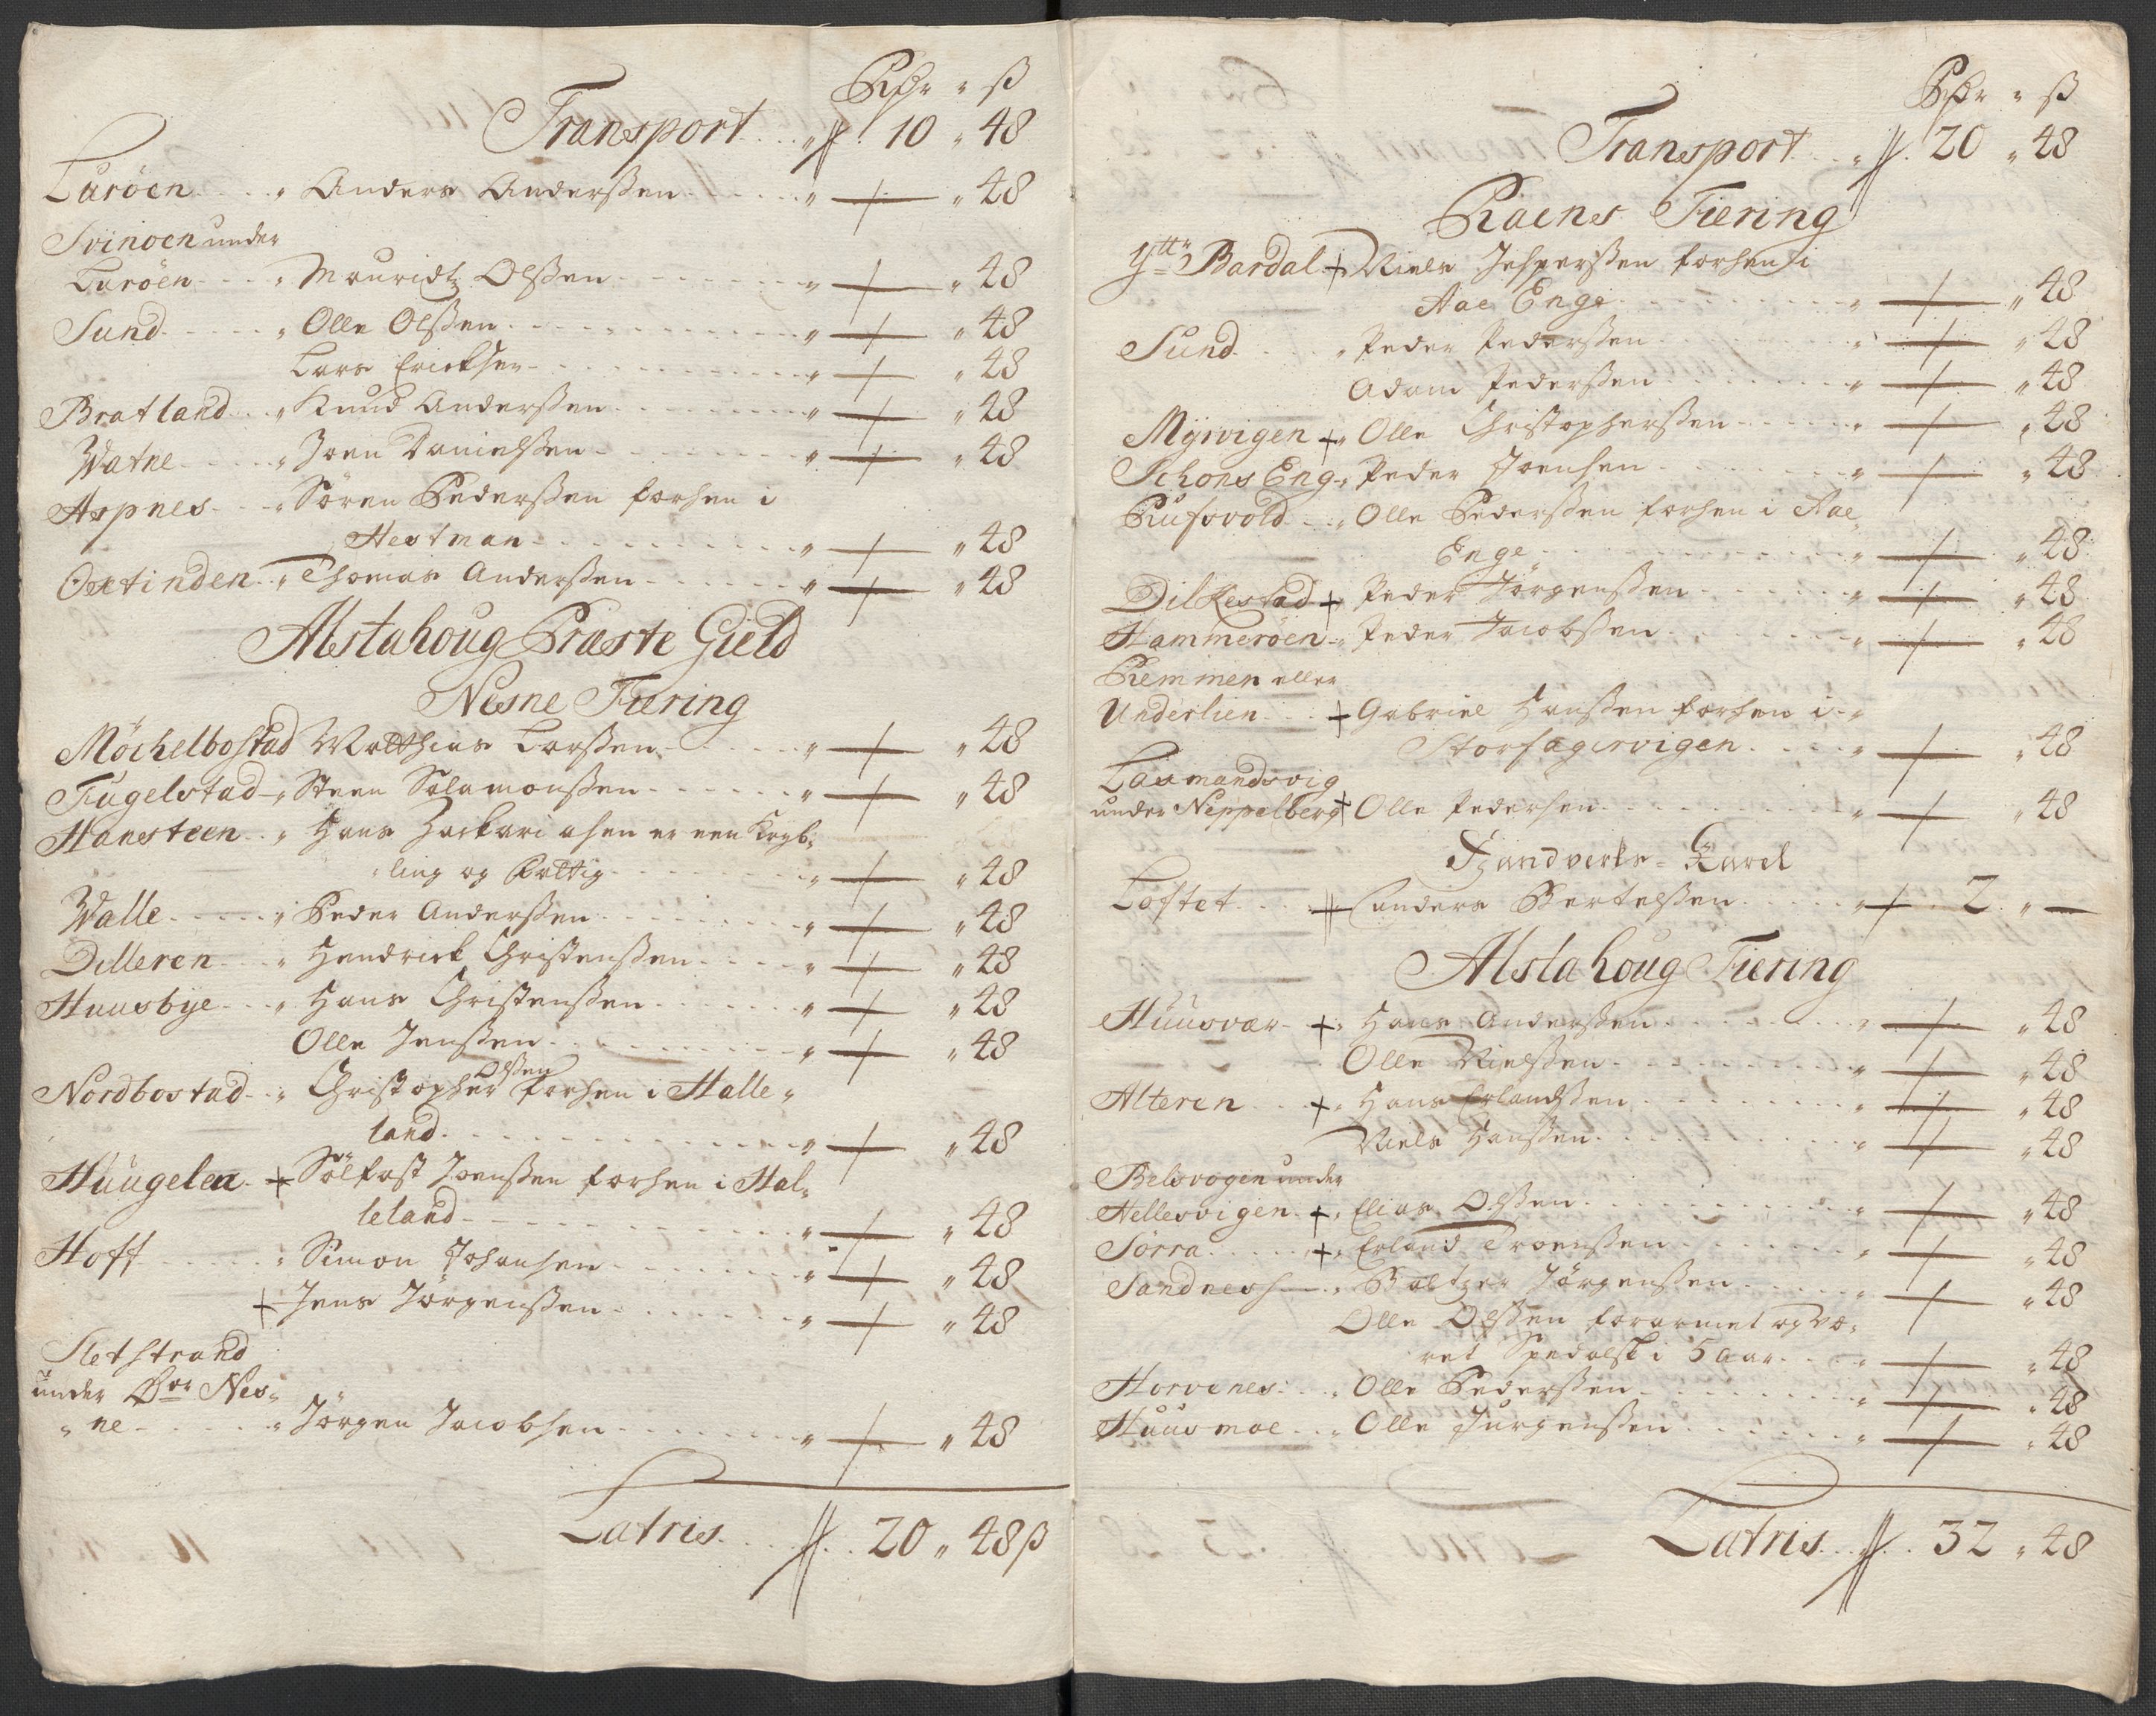 Rdr " ß
Transport . . " 10 " 48
Luröen . . . " Anders Anderßen . . . . " — " 48
Svinöen under
Luröen . . . " Mouridtz Olßen . . . . " — " 48
Sund . . . . " Olle Olßen . . . . " — " 48
Lars Erichsen . . . . " — " 48
Bratland . . " Knud Anderßen . . . . " — " 48
Watne . . . . " Joen Danielßen . . . . " — " 48
Aspnes . . . " Sören Pederßen forhen i
Hestman . . . . " — " 48
Oxtinden . . " Thomas Anderßen . . . . " — " 48
Alstahoug Præste Gield
Nesne Fiering
Möchelbostad Matthias Larßen . . . . " — " 48
Fugelstad " Steen Salamonßen . . . . " — " 48
Hansteen . . " Hans Zachariasen er een Kryb-
ling og Fattig . . . . " — " 48
Walle . . . . " Peder Anderßen . . . . " — " 48
Dilleren . . . " Hendrick Christenßen . . . . " — " 48
Huusbye . . . " Hans Christenßen . . . . " — " 48
Olle Jenßen . . . . " — " 48
Olßen
Nordbostad . . " Christopher forhen i Halle "
land . . . . " — " 48
Huugelen + Sölfast Joenßen forhen i Hal-
leland . . . . " — " 48
Hoff . . . . " Simon Johansen . . . . " — " 48
+ Jens Jörgenßen . . . . " — " 48
Sletstrand
under Nes-
" ne . . . . " Jörgen Jacobsen . . . . " — " 48
Latris . . . 20 " 48 ß
Rdr " ß
Transport . . " 20 " 48
Raens Fiering
Yttr Bardal + Niels Jesperßen forhen i
Aae Enge . . . . " — " 48
Sund . . . . " Peder Pederßen . . . . " — " 48
Adam Pederßen . . . . " — " 48
Myrvigen + " Olle Christopherßen . . . . " — " 48
Schons Eng " Peder Joensen . . . . " — " 48
Rufsvold . . " Olle Pederßen forhen i Aae
Enge . . . . " — " 48
Dilkestad + Peder Jörgenßen . . . . " — " 48
Hammeröen " Peder Jacobßen . . . . " — " 48
Remmen eller
Underlien . . + Gabriel Hanßen forhen i "
Storfagervigen . . . . " — " 48
Laxmandsvig
under Neppelberg + Olle Pedersen . . . . " — " 48
Handverks - Karl
Loftet . . . + Anders Bertelßen . . . . " — 2 " —
Alstahoug Fiering
Huusvær . + " Hans Anderßen . . . . " — " 48
Olle Nielßen . . . . " — " 48
Alteren . . + " Hans Erlandßen . . . . " — " 48
Niels Hanßen . . . . " — " 48
Belsvogen under
Hellesvigen . + " Elias Olßen . . . . " — " 48
Sörra . . . . + " Erland Troenßen . . . . " — " 48
Sandnes — " Baltzer Jörgenßen . . . . " — " 48
Olle Olßen forarmet og væ-
ret Spedalsk i 5 aar . . . . " — " 48
Horvenes . . " Olle Pederßen . . . . " — " 48
Huusmoe . . " Olle Jurgenßen . . . . " — " 48
Latris . . . 32 " 48